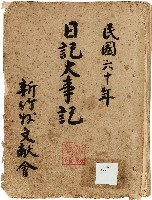 民國六十年
日記大事記
新竹縣文献會